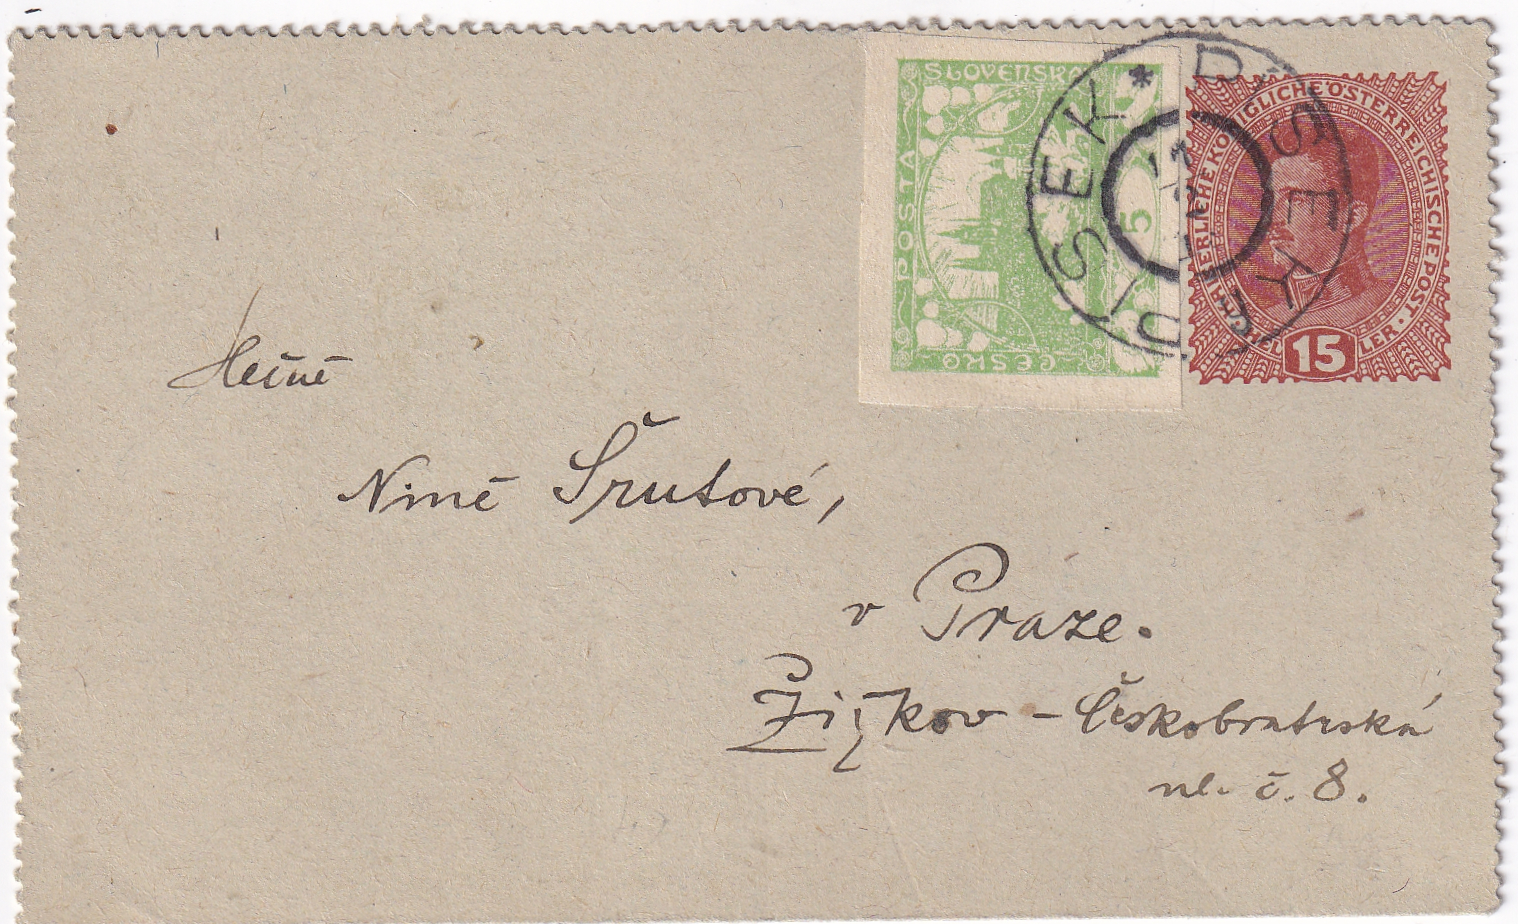 POSTA
ČESKO
SLOVENSKÁ
5
KAISERLICHE KÖNIGLICHE ÖSTERREICHISCHE POST
15
HELLER
PÍSEK * PISEK
Slečně
Nině Šrutové,
v Praze.
Žižkov – Českobratrská
ul. č. 8.